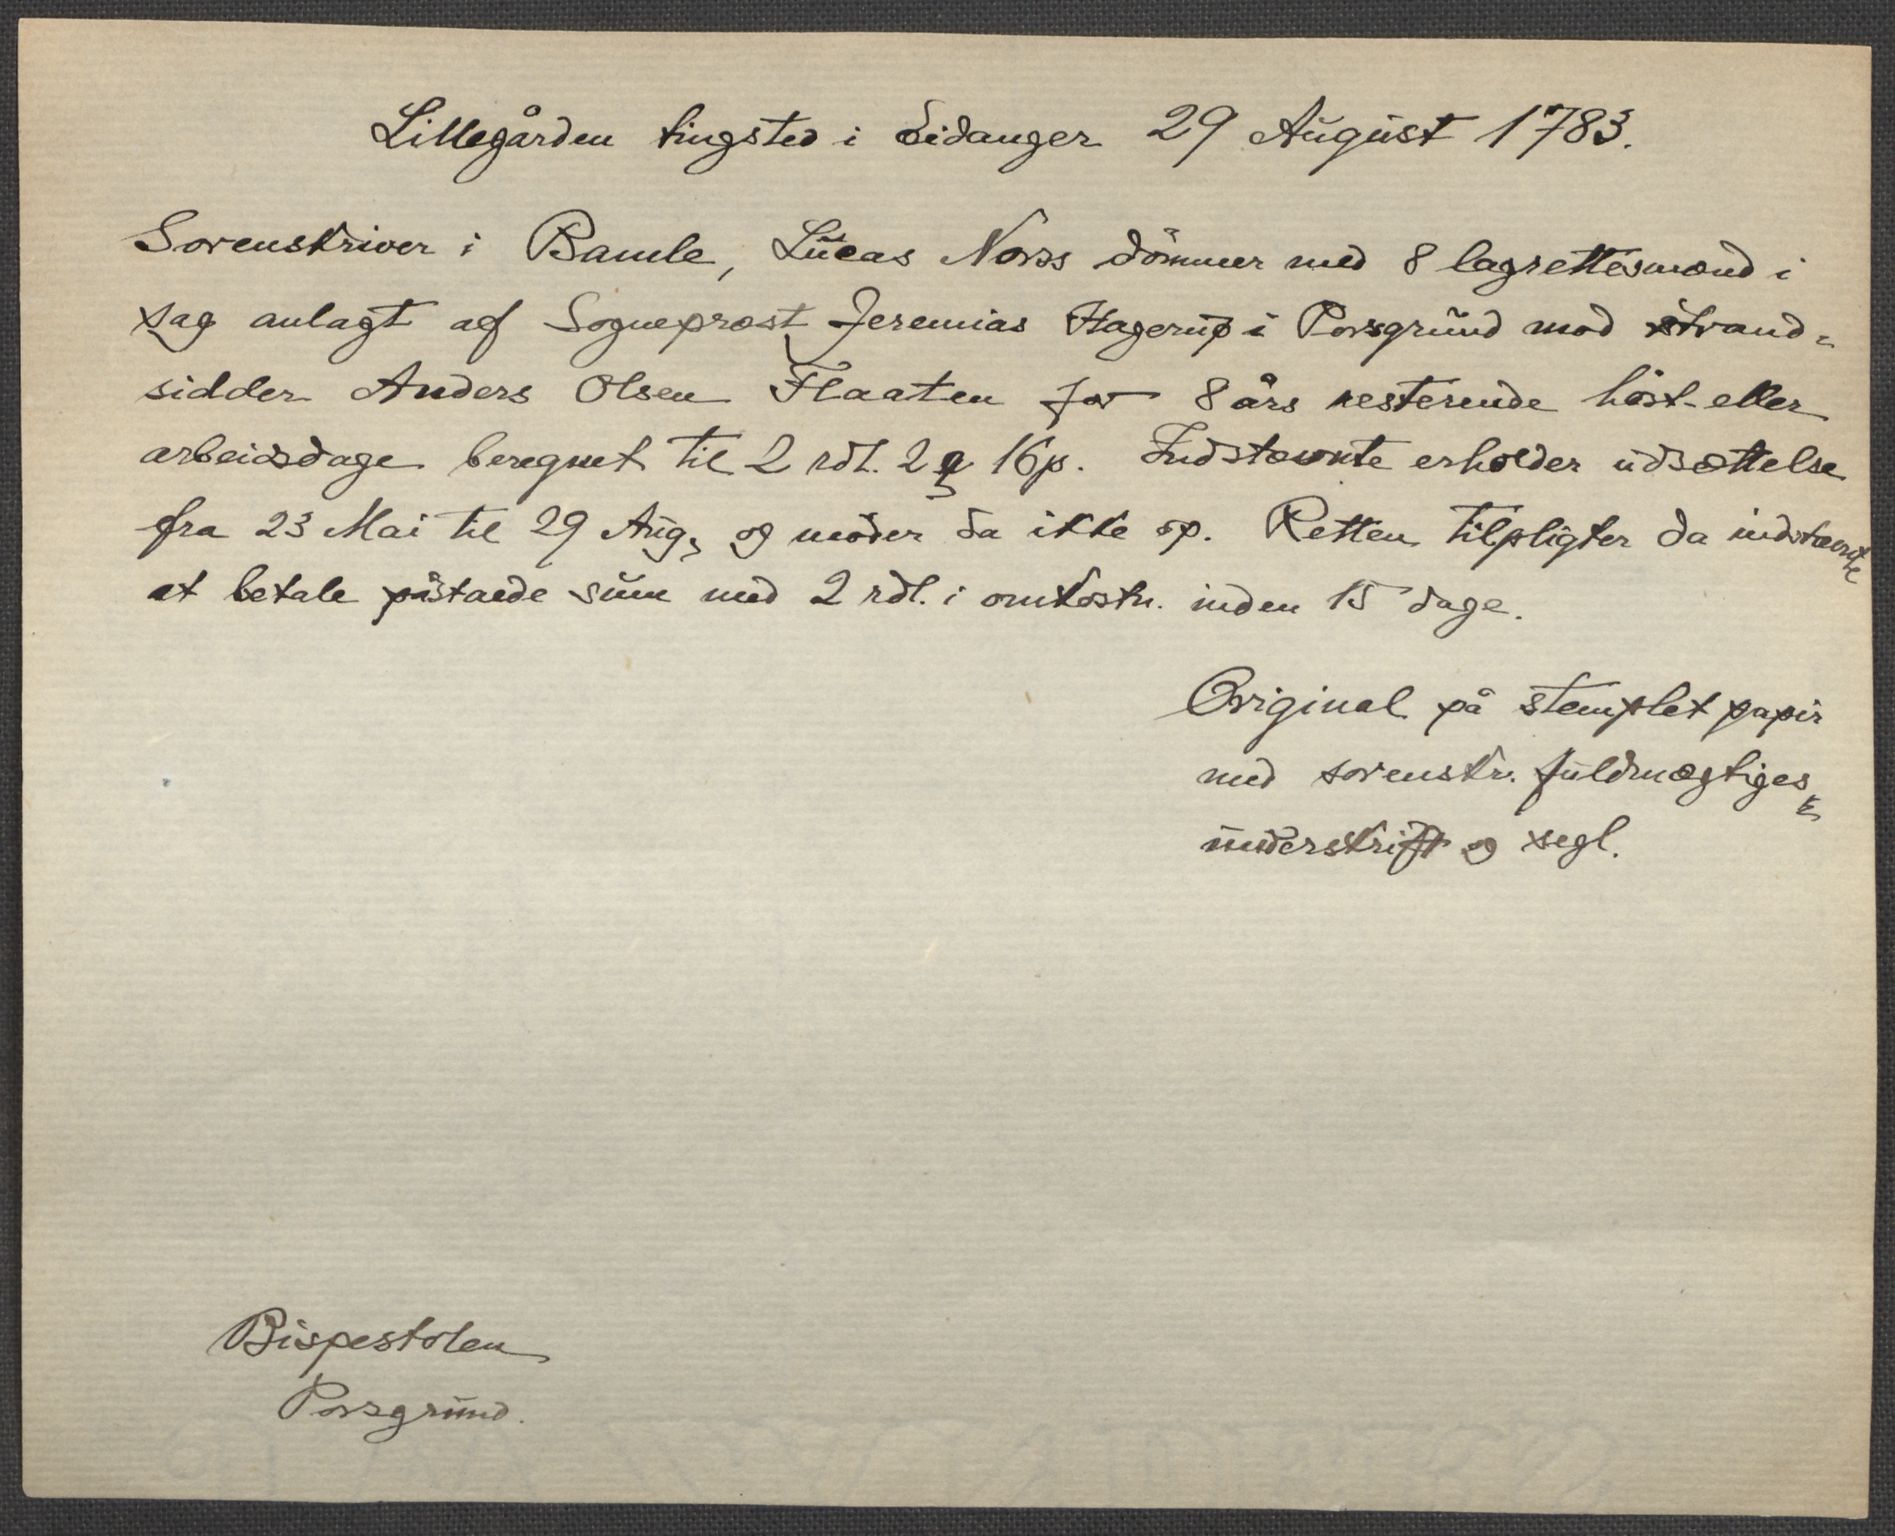 Lillegården tingsted i Eidanger 29 August 1783.
Sorenskriver i Bamle, Lucas Norss dömmer med 8 lagrettesmænd i
sag anlagt af Sognepræst Jeremias Hagerup i Porsgrund mod strand-
sidder Anders Olsen Flaaten for 8 års resterende höst- eller
arbeidsdage beregnet til 2 rdl. 2 16 p. Indstævnte erholder udsættelse
fra 23 Mai til 29 Aug, og möder da ikke op. Retten tilpligter da indstævnte
at betale påstaede sum med 2 rdl. i omkostn. inden 15 dage.
Original på stemplet papir
med sorenskr. fuldmægtiges
underskrift og segl.
Bispestolen
Porsgrund.